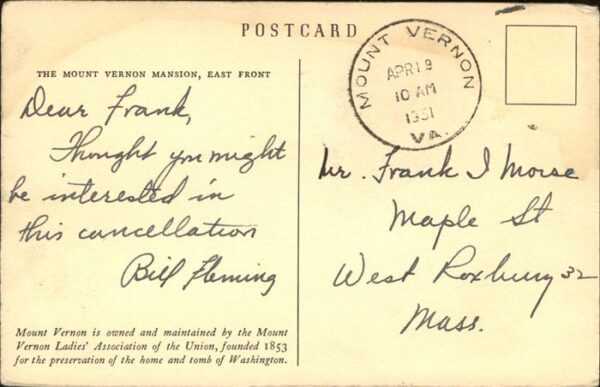 POSTCARD
THE MOUNT VERNON MANSION, EAST FRONT
Dear Frank,
Thought you might
be interested in
this cancellation
Bill Fleming
Mount Vernon is owned and maintained by the Mount
Vernon Ladies' Association of the Union, founded 1853
for the preservation of the home and tomb of Washington.
MOUNT VERNON
APR 19
10 AM
1951
VA.
Mr. Frank I Morse
Maple St
West Roxbury 32
Mass.